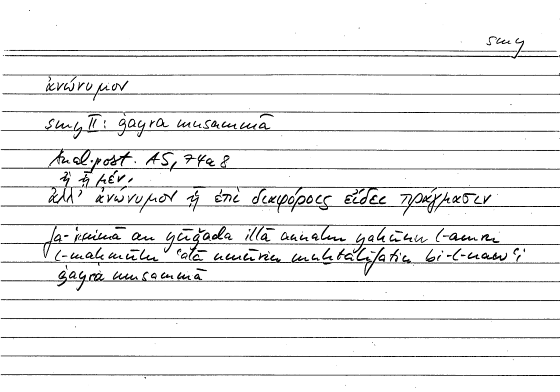 smy
ἀνώνυμον
smy II: ġayra musammā
Anal.post. A5, 74a8
ἢ ᾖ μέν,
ἀλλ' ἀνώνυμον ᾖ ἐπὶ διαφόροις εἴδει πράγμασιν
fa-immā an yūǧada illā annahu yakūnu l-amru
l-maḥmūlu ʿalā umūrin muḫtalifatin bi-l-nawʿi
ġayra musammā